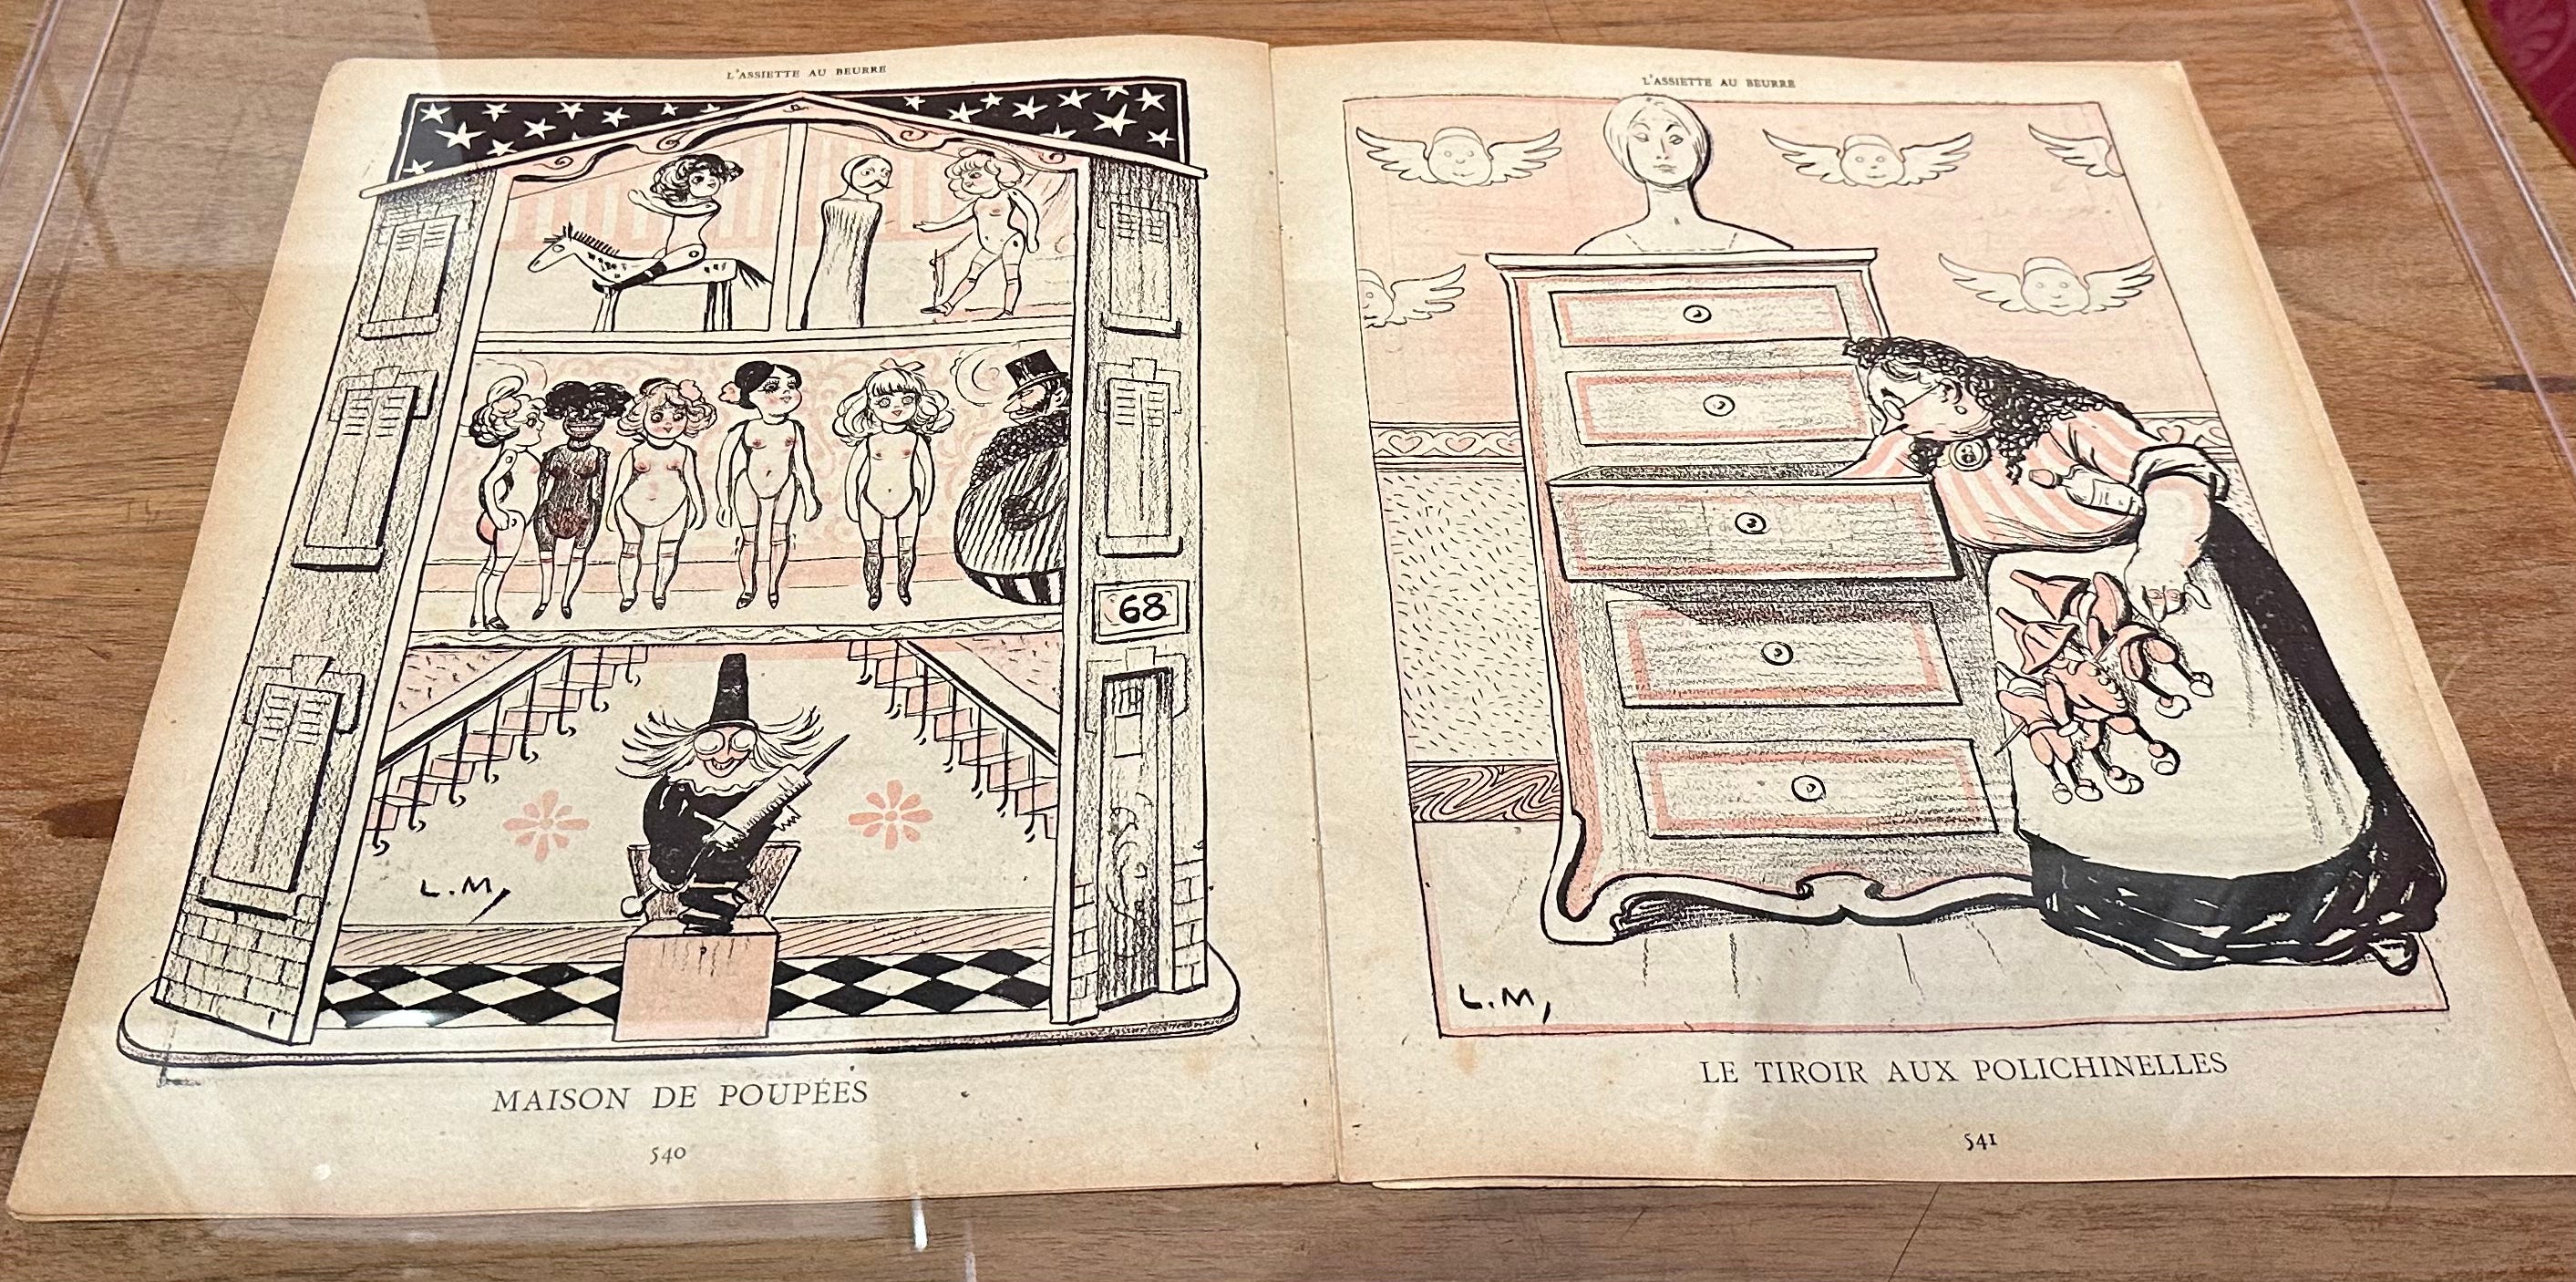 L'ASSIETTE AU BEURRE
68
L.M,
MAISON DE POUPÉES
540
L'ASSIETTE AU BEURRE
L.M,
LE TIROIR AUX POLICHINELLES
541